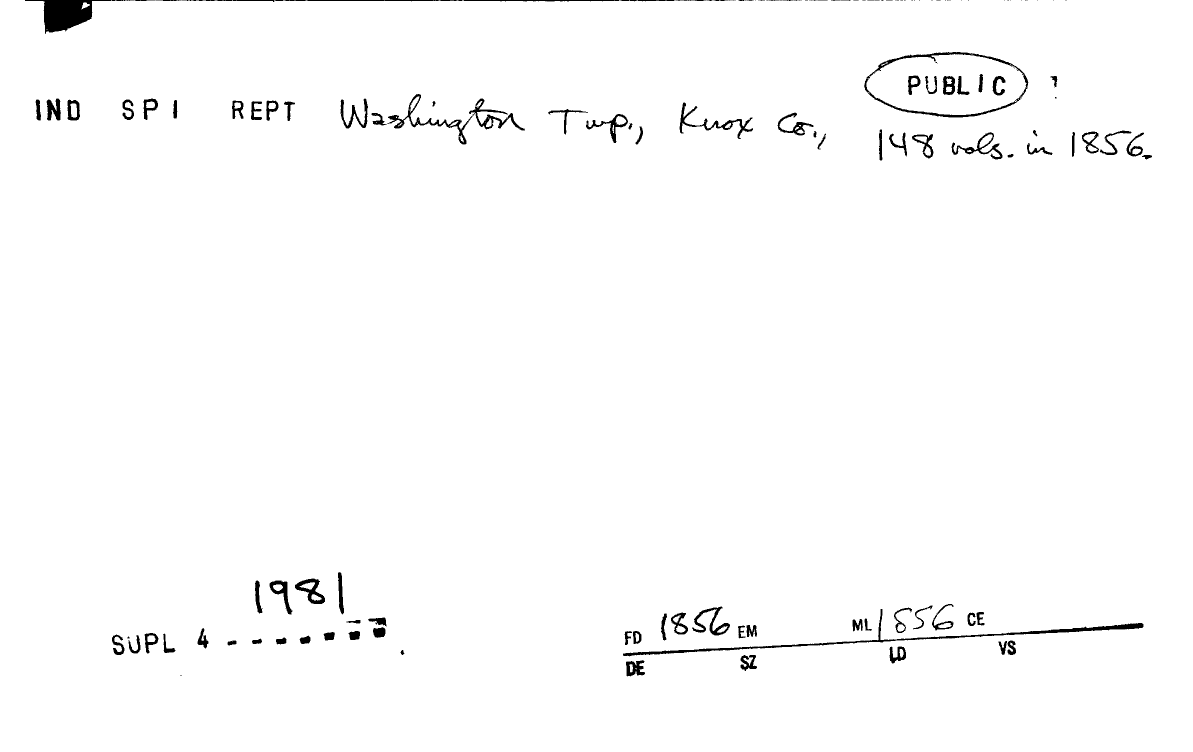 PUBLIC ?
IND SPI REPT Washington Twp., Knox Co.,
148 vols. in 1856.
1981
SUPL 4 - - - - - - -
FD 1856 EM ML 1856 CE
DE SZ LD VS